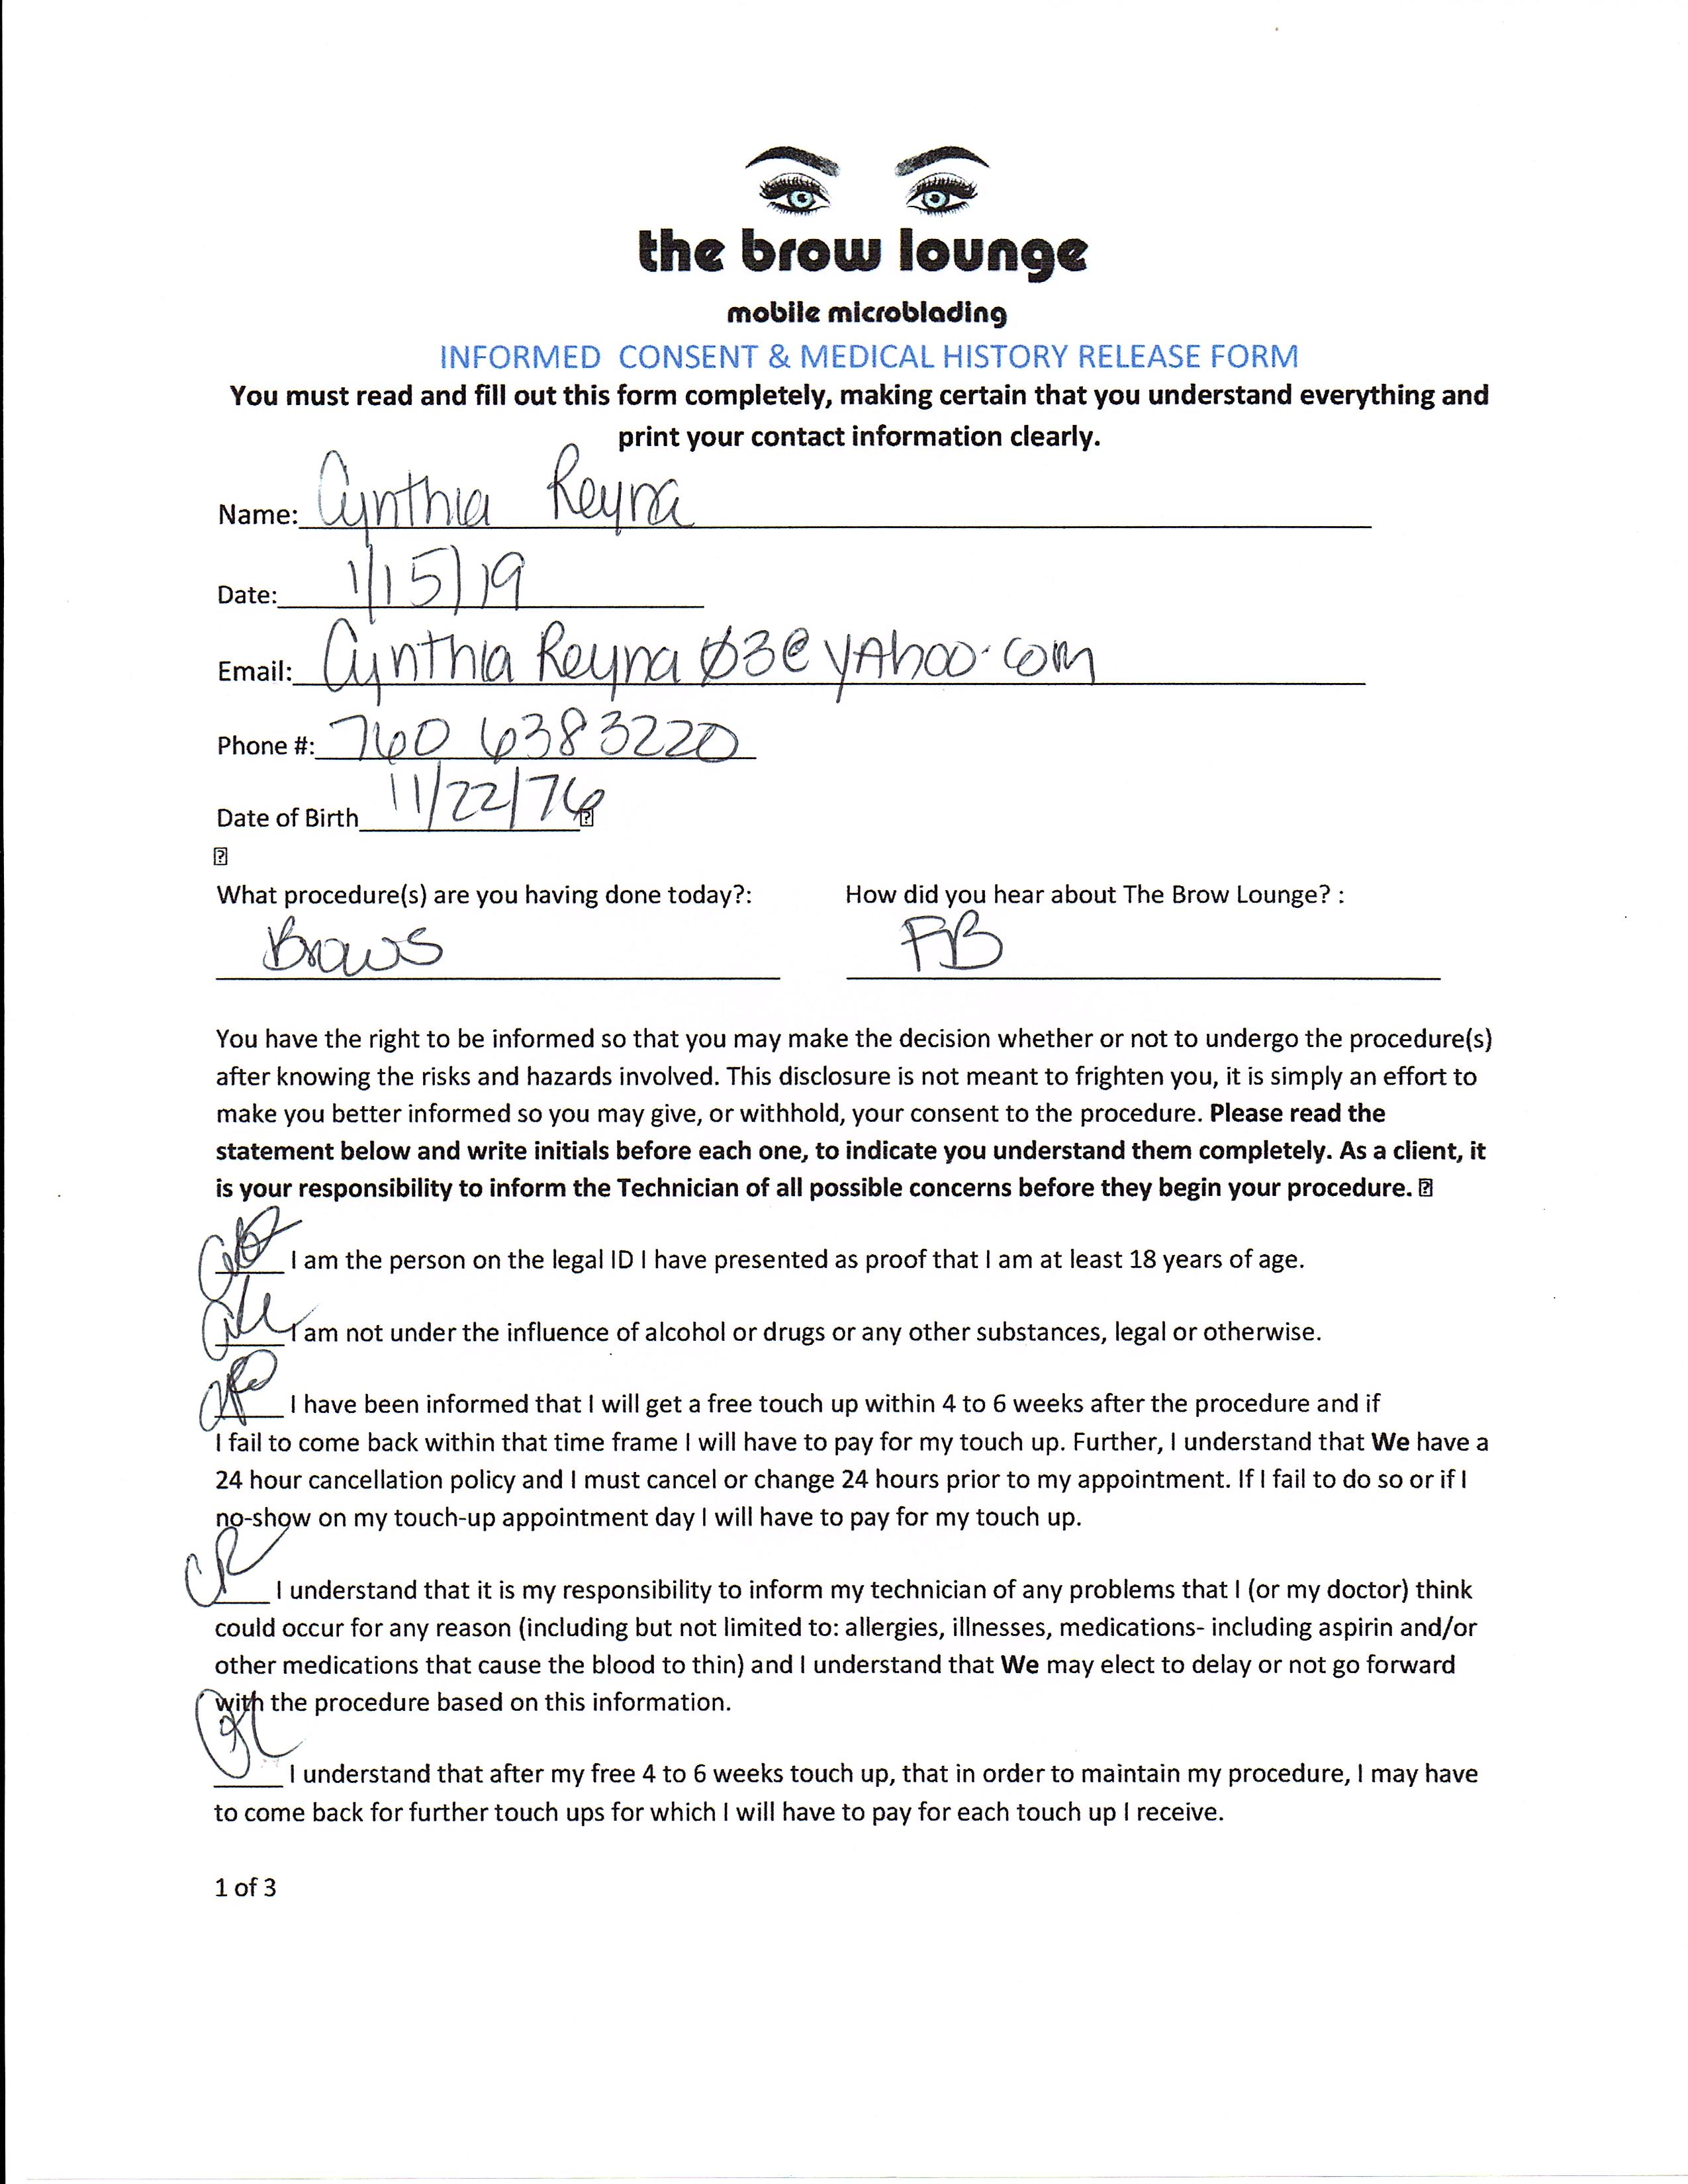 the brow lounge
mobile microblading
INFORMED CONSENT & MEDICAL HISTORY RELEASE FORM
You must read and fill out this form completely, making certain that you understand everything and
print your contact information clearly.
Name: Cynthia Reyna
Date: 1/15/19
Email: Cynthia Reyna 03@yahoo.com
Phone #: 760 6383220
Date of Birth 11/22/76
What procedure(s) are you having done today?: How did you hear about The Brow Lounge? :
Brows FB
You have the right to be informed so that you may make the decision whether or not to undergo the procedure(s)
after knowing the risks and hazards involved. This disclosure is not meant to frighten you, it is simply an effort to
make you better informed so you may give, or withhold, your consent to the procedure. Please read the
statement below and write initials before each one, to indicate you understand them completely. As a client, it
is your responsibility to inform the Technician of all possible concerns before they begin your procedure.
I am the person on the legal ID I have presented as proof that I am at least 18 years of age.
I am not under the influence of alcohol or drugs or any other substances, legal or otherwise.
I have been informed that I will get a free touch up within 4 to 6 weeks after the procedure and if
I fail to come back within that time frame I will have to pay for my touch up. Further, I understand that We have a
24 hour cancellation policy and I must cancel or change 24 hours prior to my appointment. If I fail to do so or if I
no-show on my touch-up appointment day I will have to pay for my touch up.
CR I understand that it is my responsibility to inform my technician of any problems that I (or my doctor) think
could occur for any reason (including but not limited to: allergies, illnesses, medications- including aspirin and/or
other medications that cause the blood to thin) and I understand that We may elect to delay or not go forward
with the procedure based on this information.
I understand that after my free 4 to 6 weeks touch up, that in order to maintain my procedure, I may have
to come back for further touch ups for which I will have to pay for each touch up I receive.
1 of 3